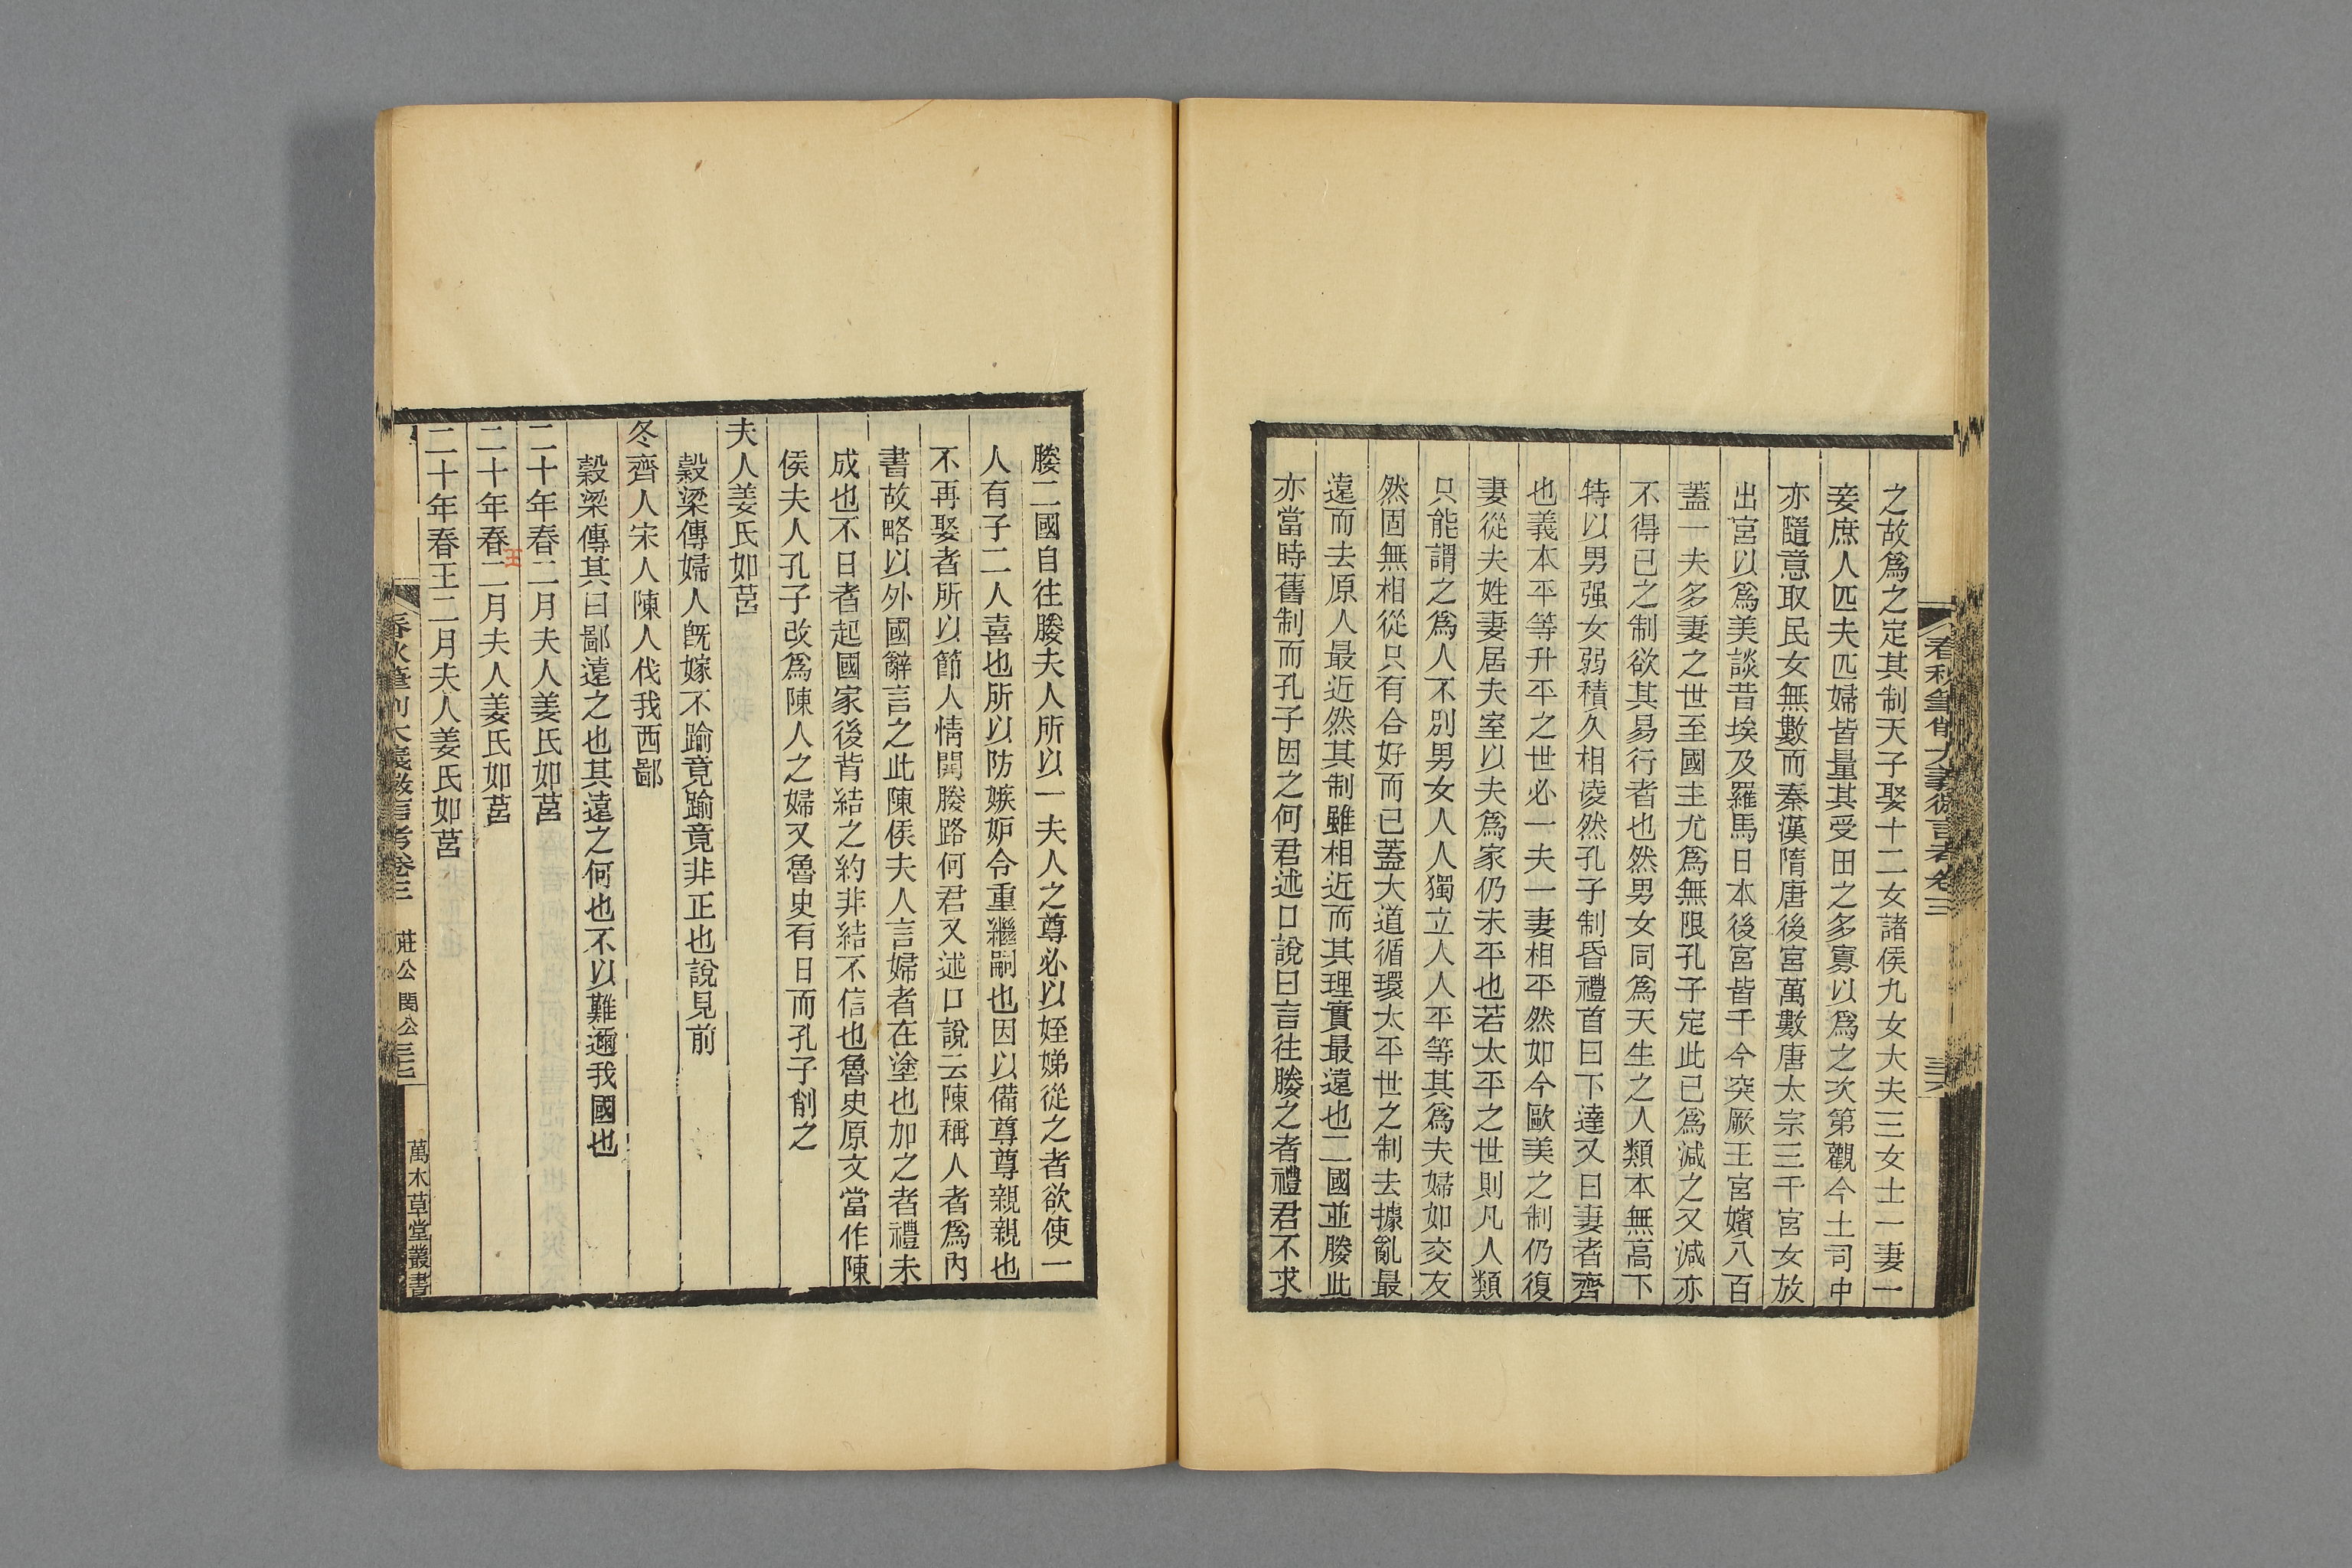 春秋筆削大義微言考卷三
之故爲之定其制天子娶十二女諸侯九女大夫三女士一妻一
妾庶人匹夫匹婦皆量其受田之多寡以爲之次第觀今土司中
亦隨意取民女無數而秦漢隋唐後宮萬數唐太宗三千宮女放
出宮以爲美談昔埃及羅馬日本後宮皆千今突厥王宮嬪八百
蓋一夫多妻之世至國主尤爲無限孔子定此已爲減之又減亦
不得已之制欲其易行者也然男女同爲天生之人類本無高下
特以男强女弱積久相凌然孔子制昏禮首曰下達又曰妻者齊
也義本平等升平之世必一夫一妻相平然如今歐美之制仍復
妻從夫姓妻居夫室以夫爲家仍未平也若太平之世則凡人類
只能謂之爲人不別男女人人獨立人人平等其爲夫婦如交友
然固無相從只有合好而已蓋大道循環太平世之制去據亂最
遠而去原人最近然其制雖相近而其理實最遠也二國並媵此
亦當時舊制而孔子因之何君述口說曰言往媵之者禮君不求
媵二國自往媵夫人所以一夫人之尊必以姪娣從之者欲使一
人有子二人喜也所以防嫉妒令重繼嗣也因以備尊尊親親也
不再娶者所以節人情開媵路何君又述口說云陳稱人者爲內
書故略以外國辭言之此陳侯夫人言婦者在塗也加之者禮未
成也不日者起國家後背結之約非結不信也魯史原文當作陳
侯夫人孔子改爲陳人之婦又魯史有日而孔子削之
夫人姜氏如莒
穀梁傳婦人旣嫁不踰竟踰竟非正也說見前
冬齊人宋人陳人伐我西鄙
穀梁傳其曰鄙遠之也其遠之何也不以難邇我國也
二十年春二月夫人姜氏如莒
二十年春王二月夫人姜氏如莒
二十年春王二月夫人姜氏如莒
春秋筆削大義微言考卷三 莊公 閔公
萬木草堂叢書